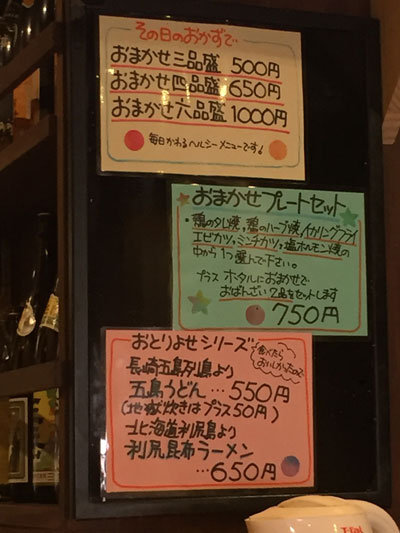 その日のおかずで
おまかせ三品盛 500円
おまかせ四品盛 650円
おまかせ六品盛 1000円
毎日かわるヘルシーメニューです!
おまかせプレートセット
・鶏のタレ焼,鶏のハーブ焼,イカリングフライ
エビカツ,ミンチカツ,塩ホルモン焼の
中から1つ選んで下さい。
プラス ホタルにおまかせで
おばんざい2品をセットします
750円
おとりよせシリーズ
食べたら
おいしかったので
長崎五島列島より
五島うどん…550円
(地獄炊きはプラス50円)
北海道利尻島より
利尻昆布ラーメン
…650円
T-Fal